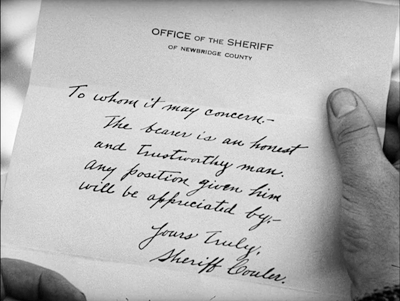 OFFICE OF THE SHERIFF
OF NEWBRIDGE COUNTY
To whom it may concern.-
The bearer is an honest
and trustworthy man.
Any position given him
will be appriciated by,-
Yours Truly,
Sheriff Couler.